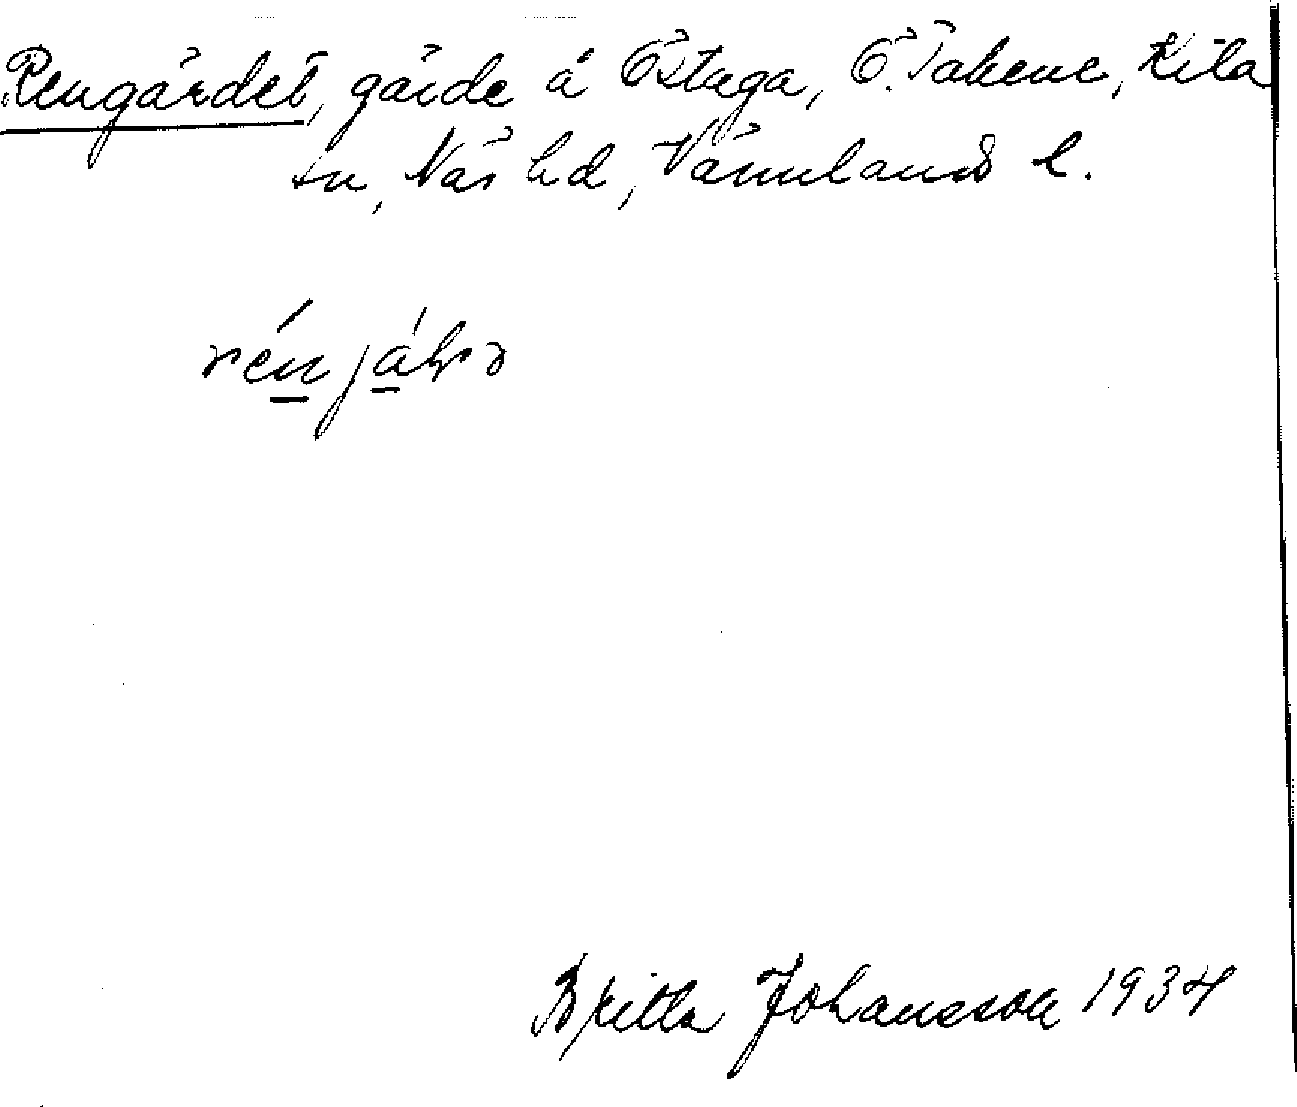 Rengärdet, gärde å Östuga, Ö. Takene, Kila
sn, Näs hd, Värmlands l.
rénjáḷɔ
Britta Johansson 1934